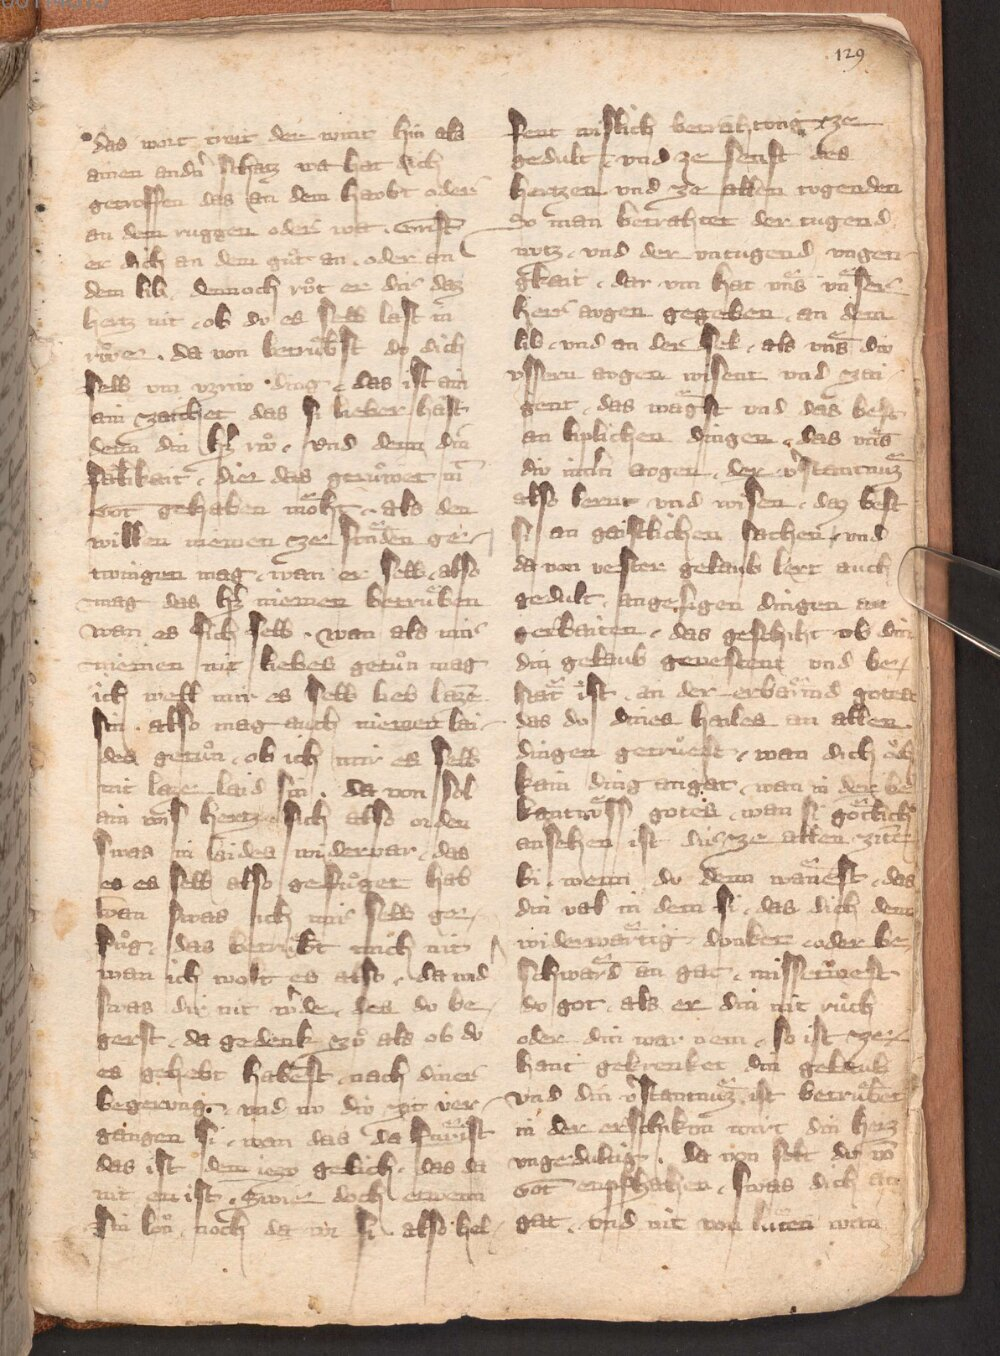 129
das wort treit der wint hin als
ainen andn̄ schatz wa hat dich
getroffen das an dem haubt oder
an dem ruggen oder wa
er dich an dem gůt an. oder an
dem lib. dennoch růt er dir daz
hertz nit. ob du es selb last in
růwer. da von betrůbst du dich
selb um ding. das ist ain
ain zaichet das si lieber hast
denn din hz růw. und denn din
sälikait. dier das gerůwet in
Got gehaben moͤht. als den
willen niemen ze sůnden ge-
twingen mag. wan er selb. also
mag das hz niemen betrůben
wan es sich selb. wan als mir
niemen nit liebes getůn mag
ich well mir es selb lieb laze
sin. also mag auch niemen lai-
des getůn. ob ich mir es selb
nit laze laid sin. da von sol
ain wis hertz. sich also orden
swas im laides widervar. das
es es selb also gefůget hab
wan swas ich mir selb ge-
fůg. das betrůbt mich nit
wan ich wolt es also. da und
swas dir nit w̄de. des du be-
gerst. da gedenk zů als ob du
es gehebt habest. nach diner
begerung. und nu diu zit ver-
gangen si. wan das da
das ist dem iezu gelich. das da
nit en ist. doch etwenn
sin lon noch da wi si. also hel-
fent wislich betrahtong ze
gedult. und ze senft des
hertzen und ze allen tugenden
So man betrahtet der tugend
nutz. und der untugend ungen-
gkait. dar um hat uns unser
herr augen gegeben. an dem
lib. und an der sel. als uns diu
ussern augen wisent und zai-
gent. das wägst und das best
an liplichen dingen. das uns
diu innrn augen. der v̄stantnuz
also lernt und wisen. daz best
si an gaistlichen sachen. und
da von vester gelaub lert auch
gedult. angesigen dingen an
erbaiten. das geschiht ob din
din gelaub gevestent und be-
ist. an der erbärmd gottes
das du dines hailes an allen
dingen getrůest. wan dich
kain ding angat. wan in der be
kantnůss gotes. wan si gotlich
ansehen ist dir ze allen ziten
bi. wenn du denn wänest. das
din val in dem si. das dich denn
widerwärtig dunket. oder be
schwärd an gat. missetrůwest
du got. als er din nit růch
oder din war nem. so ist ze-
hant gekrenket din gelaub
und din v̄stantnuz. ist betrůbet
in der wirt din hertz
ungedultig. da von solt du von
Got enpfahen. swas dich an
gat. und nit von lůten wan